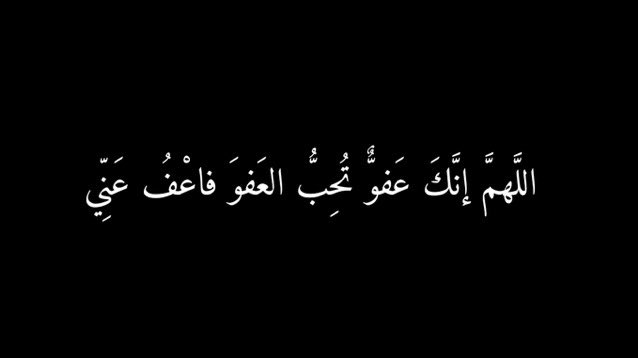 اللَّهمَّ إنَّكَ عَفوٌّ تُحِبُّ العَفوَ فاعْفُ عَنِّي